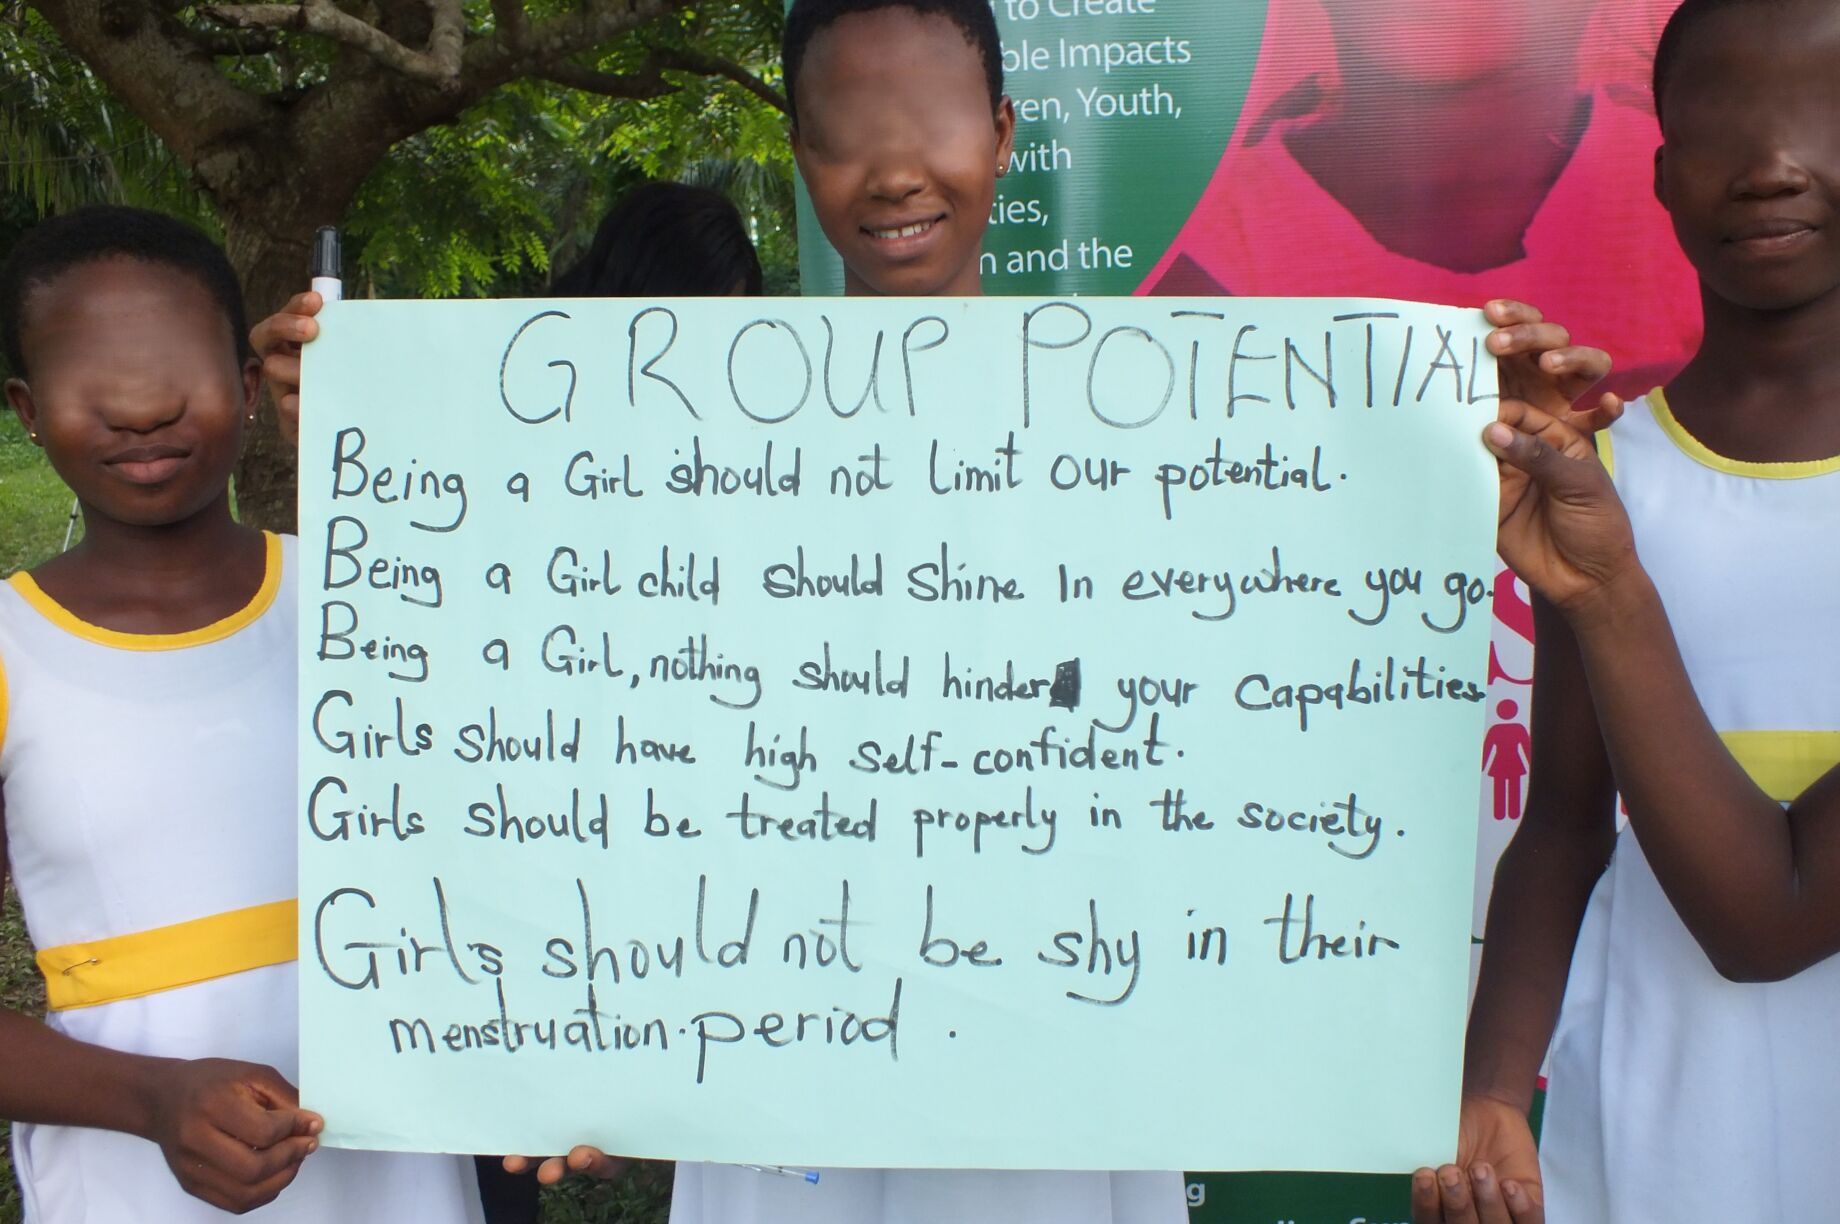 to Create
ble Impacts
ren, Youth,
with
ties,
n and the
GROUP POTENTIAL
Being a Girl should not limit our potential.
Being a Girl child should shine In everywhere you go.
Being a Girl, nothing should hinder your Capabilities
Girls should have high self-confident.
Girls should be treated properly in the society.
Girls should not be shy in their
menstruation.period.
S
g